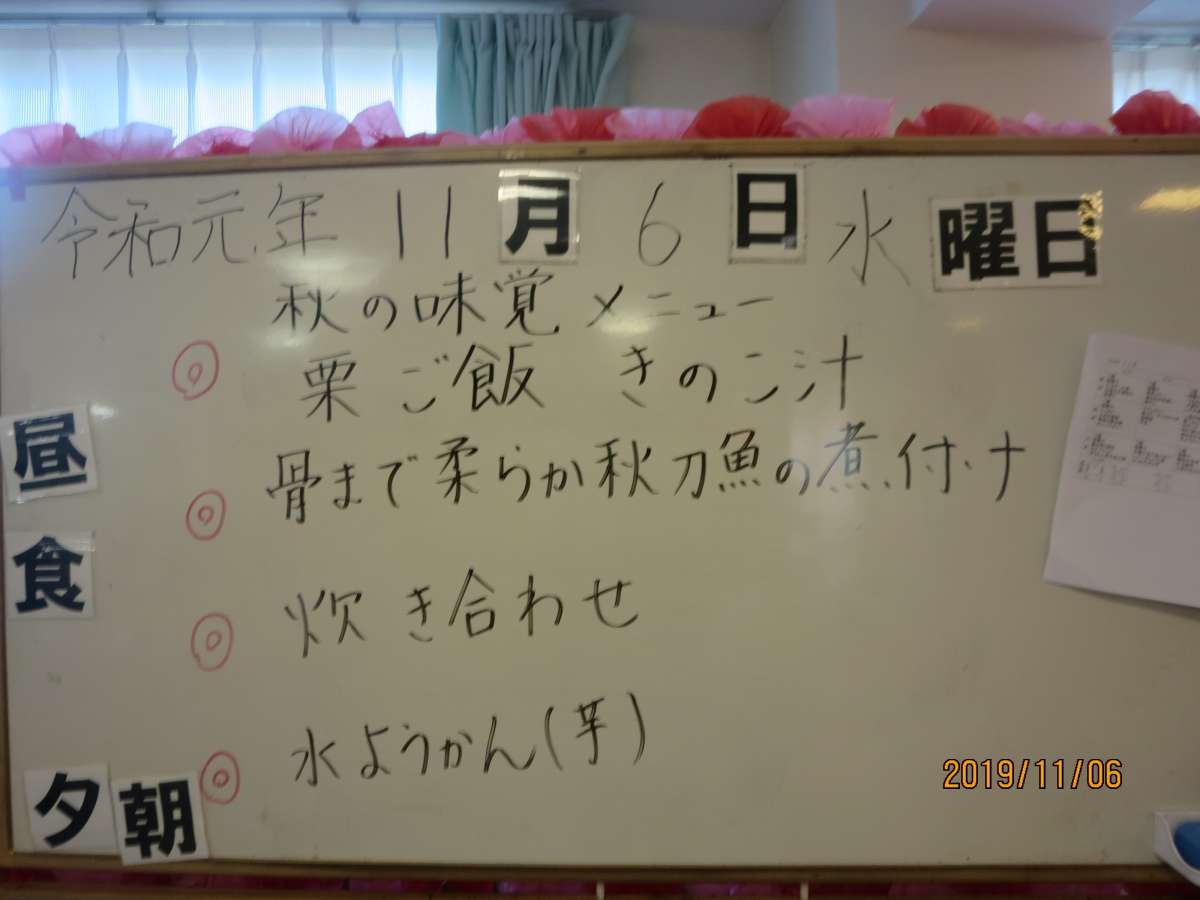 令和元年 11月 6日 水曜日
秋の味覚メニュー
◎ 栗ご飯 きのこ汁
昼食
◎ 骨まで柔らか秋刀魚の煮付ナ
◎ 炊き合わせ
◎ 水ようかん(芋)
夕 朝
2019/11/06